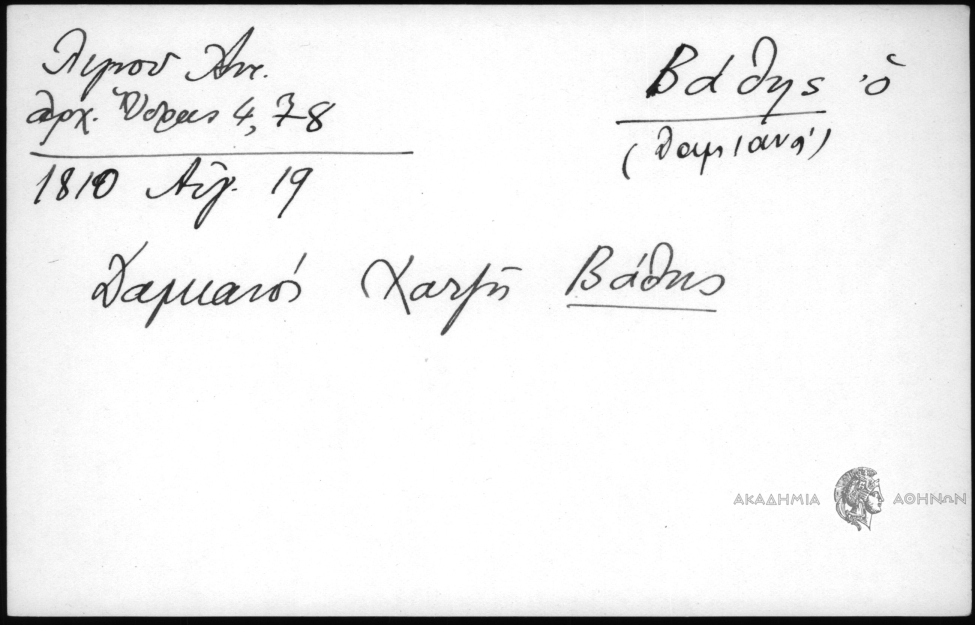 Λιγνού Ἀντ.
Ἀρχ. Ὕδρας 4, 78
1810 Αὔγ. 19
Βάθης ὁ
(Δαμιανός)
Δαμιανός Χατζῆ Βάθης
ΑΚΑΔΗΜΙΑ ΑΘΗΝΩΝ